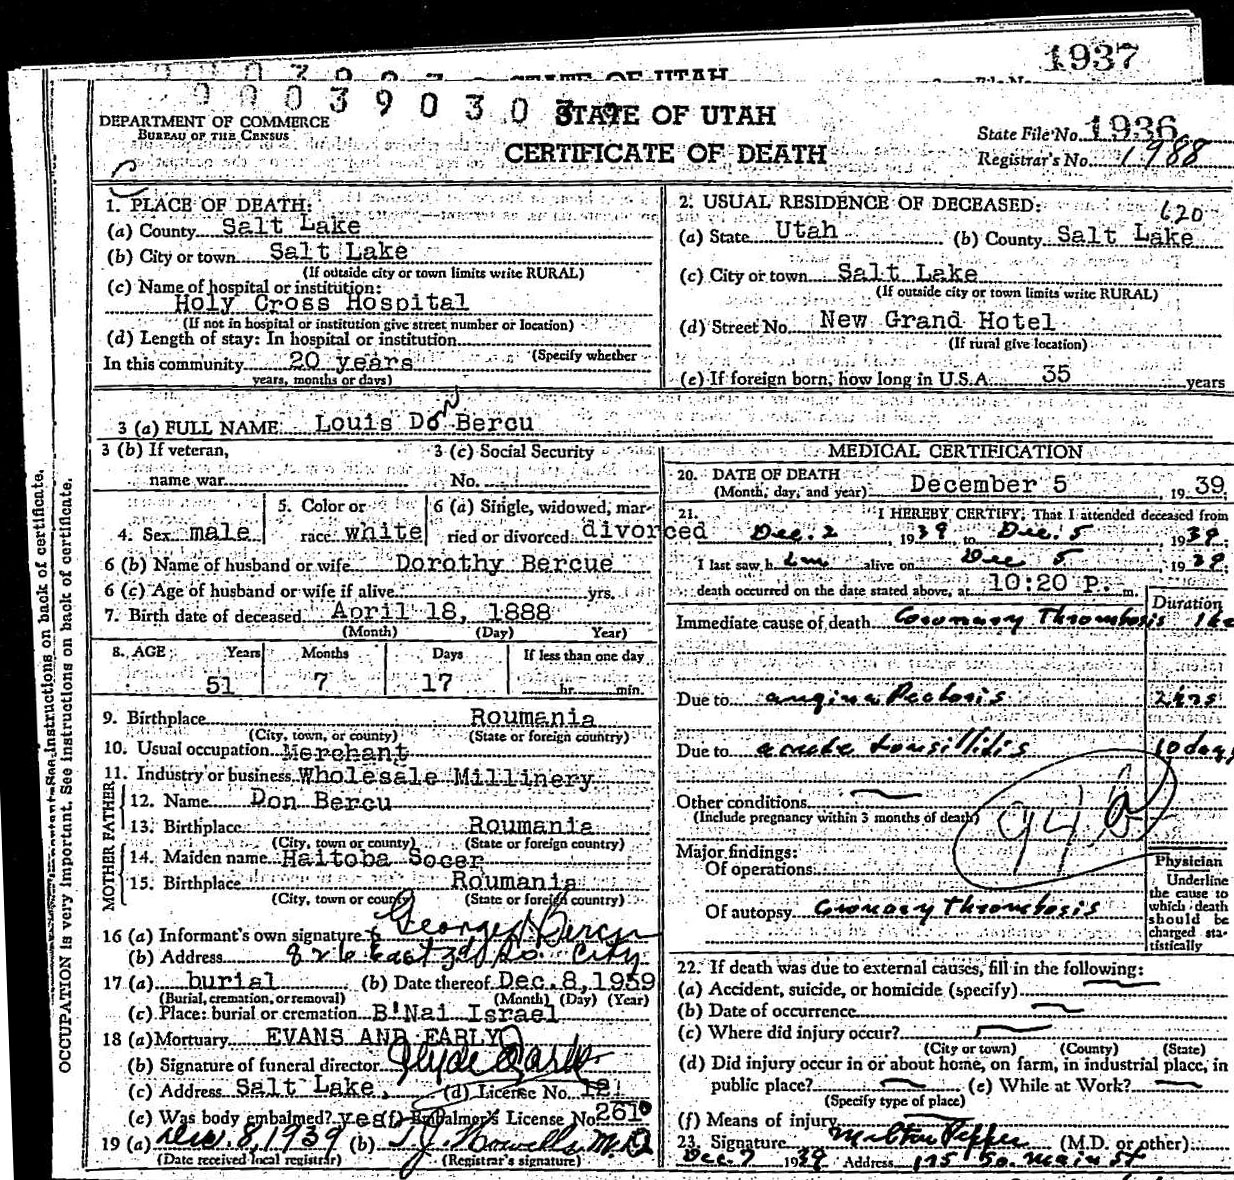 1937
STATE OF UTAH
DEPARTMENT OF COMMERCE
BUREAU OF THE CENSUS
STATE OF UTAH
CERTIFICATE OF DEATH
State File No. 1936
Registrar's No. 1988
1. PLACE OF DEATH:
(a) County Salt Lake
(b) City or town Salt Lake
(If outside city or town limits write RURAL)
(c) Name of hospital or institution:
Holy Cross Hospital
(If not in hospital or institution give street number or location)
(d) Length of stay: In hospital or institution
(Specify whether
In this community 20 years
years, months or days)
2. USUAL RESIDENCE OF DECEASED:
620
(a) State Utah (b) County Salt Lake
(c) City or town Salt Lake
(If outside city or town limits write RURAL)
(d) Street No. New Grand Hotel
(If rural give location)
(e) If foreign born, how long in U.S.A. 35 years
3 (a) FULL NAME Louis Don Bercu
3 (b) If veteran,
name war
3 (c) Social Security
No.
4. Sex male
5. Color or
race white
6 (a) Single, widowed, mar-
ried or divorced divorced
6 (b) Name of husband or wife Dorothy Bercue
6 (c) Age of husband or wife if alive yrs.
7. Birth date of deceased April 18, 1888
(Month) (Day) Year)
8. AGE: Years Months Days If less than one day
51 7 17 hr. min.
9. Birthplace Roumania
(City, town, or county) (State or foreign country)
10. Usual occupation Merchant
11. Industry or business Wholesale Millinery
FATHER
12. Name Don Bercu
13. Birthplace Roumania
(City, town or county) (State or foreign country)
MOTHER
14. Maiden name Haitoba Socer
15. Birthplace Roumania
(City, town or county) (State or foreign country)
16 (a) Informant's own signature George Bercu
(b) Address 826 East 3rd So. City
17 (a) burial (b) Date thereof Dec. 8, 1939
(Burial, cremation, or removal) (Month) (Day) (Year)
(c) Place: burial or cremation B'Nai Israel
18 (a) Mortuary EVANS AND EARLY
(b) Signature of funeral director Clyde Early
(c) Address Salt Lake, (d) License No. 121
(e) Was body embalmed? yes (f) Embalmer's License No. 261
19 (a) Dec. 8, 1939 (b) T. J. Howells M.D.
(Date received local registrar) (Registrar's signature)
MEDICAL CERTIFICATION
20. DATE OF DEATH
(Month, day, and year) December 5, 1939
21. I HEREBY CERTIFY, That I attended deceased from
Dec. 2, 1939, to Dec. 5 1939
I last saw him alive on Dec 5 1939
death occurred on the date stated above, at 10:20 P. m.
Duration
Immediate cause of death Coronary Thrombosis
Due to angina Pectoris 2 yrs
Due to acute tonsillitis 10 days
Other conditions
(Include pregnancy within 3 months of death)
94 b
Major findings:
Of operations
Of autopsy Coronary Thrombosis
Physician
Underline
the cause to
which death
should be
charged sta-
tistically
22. If death was due to external causes, fill in the following:
(a) Accident, suicide, or homicide (specify)
(b) Date of occurrence
(c) Where did injury occur?
(City or town) (County) (State)
(d) Did injury occur in or about home, on farm, in industrial place, in
public place? (e) While at Work?
(Specify type of place)
(f) Means of injury
23. Signature Milton Pepper (M.D. or other)
Dec 7 1939 Address 175 So. Main St
OCCUPATION is very important. See instructions on back of certificate.